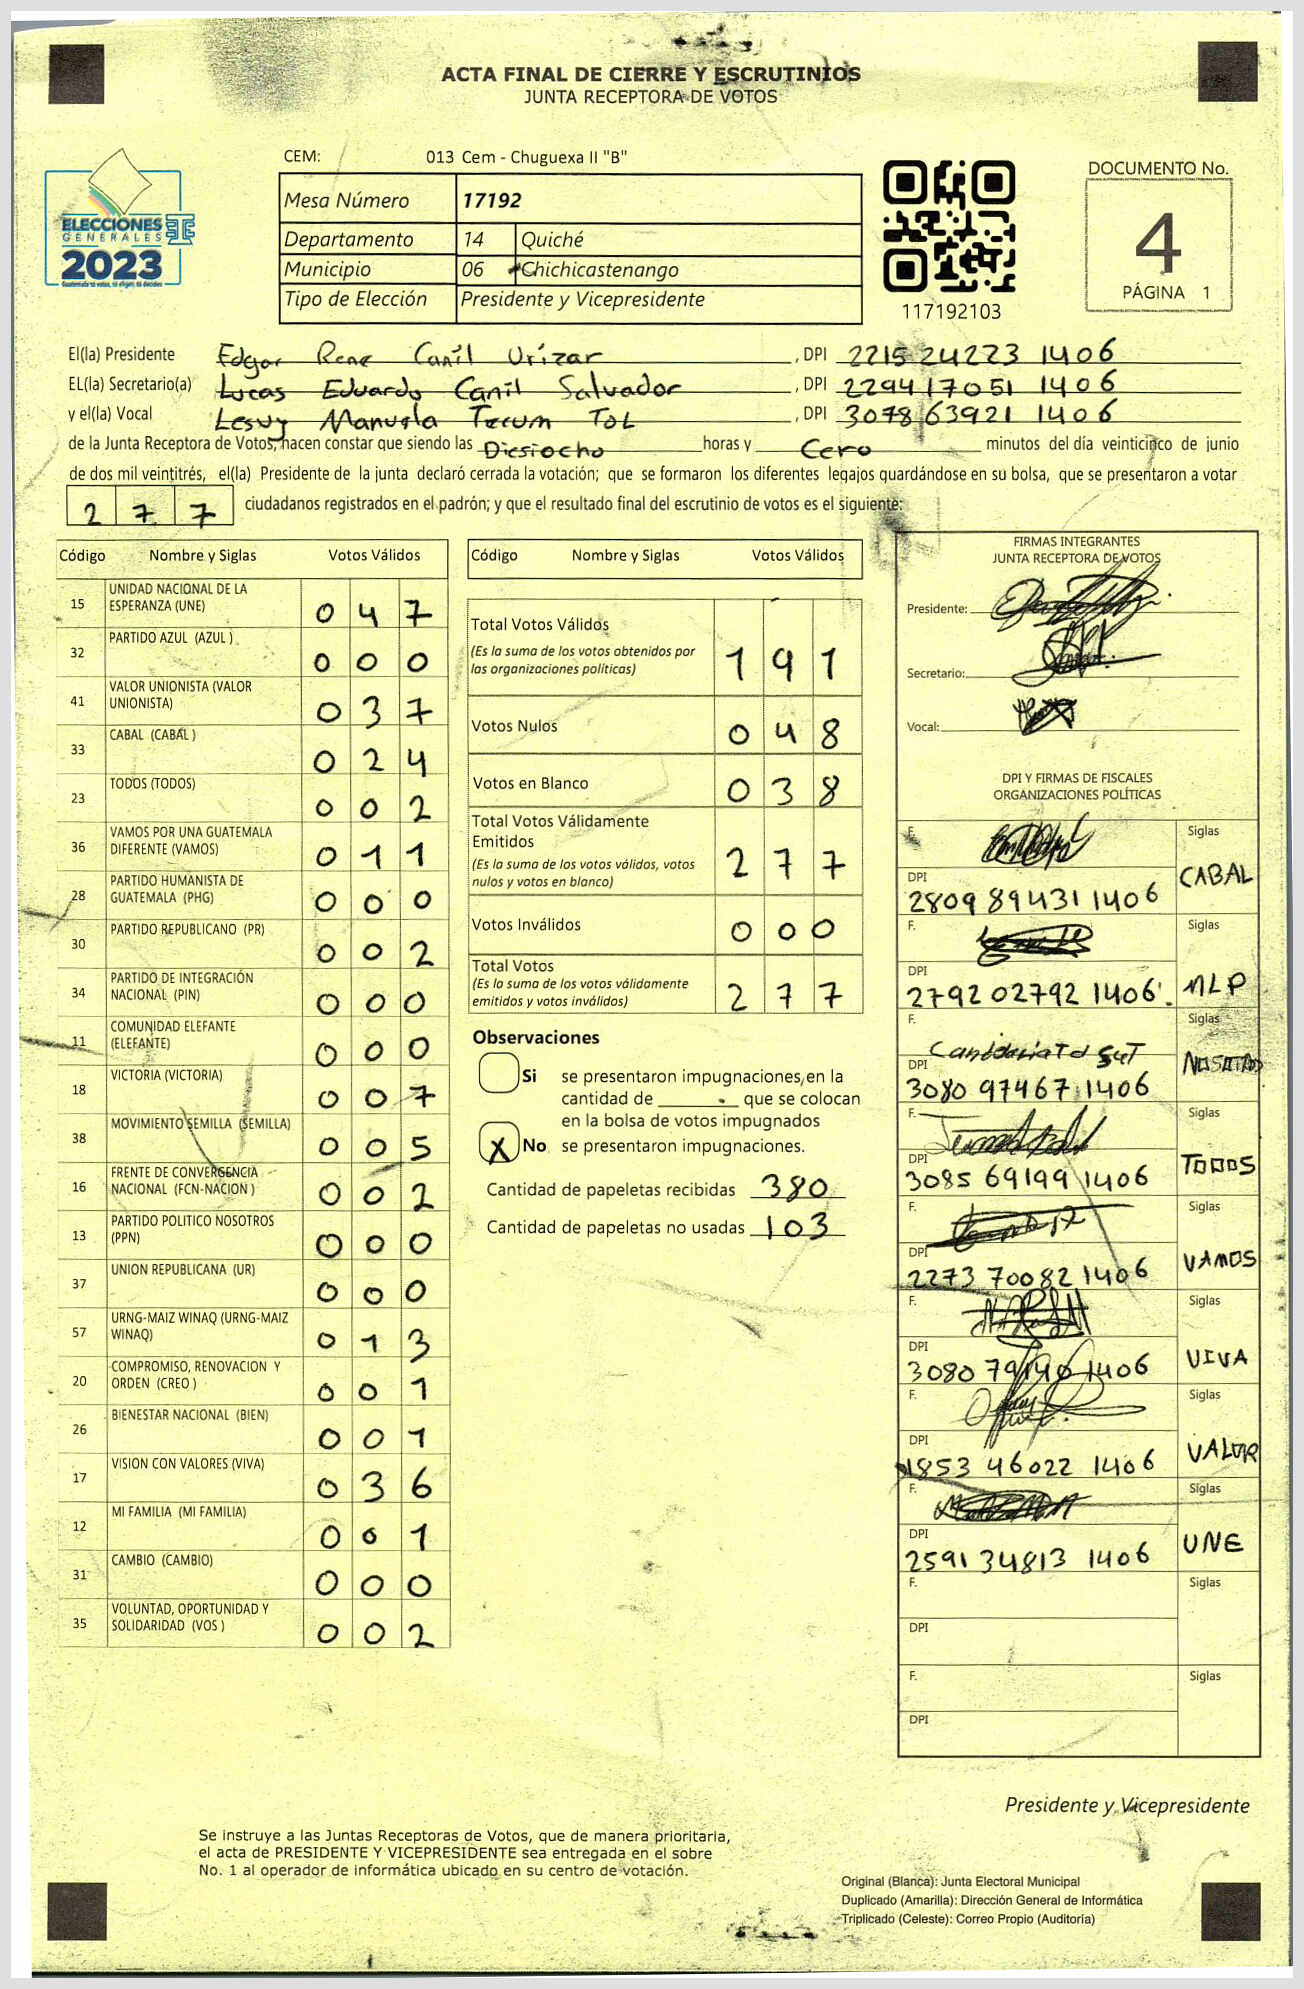 ACTA FINAL DE CIERRE Y ESCRUTINIOS
JUNTA RECEPTORA DE VOTOS
CEM: 013 Cem - Chuguexa II "B"
Mesa Número 17192
Departamento 14 Quiché
Municipio 06 Chichicastenango
Tipo de Elección Presidente y Vicepresidente
ELECCIONES
GENERALES
2023
117192103
DOCUMENTO No.
4
PÁGINA 1
El(la) Presidente Edgar Rene Canil Urízar , DPI 2215 24223 1406
EL(la) Secretario(a) Lucas Eduardo Canil Salvador , DPI 2294 17051 1406
y el(la) Vocal Lesvy Manuela Tecum Tol , DPI 3078 63921 1406
de la Junta Receptora de Votos, hacen constar que siendo las Diesiocho horas y Cero minutos del día veinticinco de junio
de dos mil veintitrés, el(la) Presidente de la junta declaró cerrada la votación; que se formaron los diferentes legajos guardándose en su bolsa, que se presentaron a votar
2 7 7 ciudadanos registrados en el padrón; y que el resultado final del escrutinio de votos es el siguiente:
Código Nombre y Siglas Votos Válidos
15 UNIDAD NACIONAL DE LA
ESPERANZA (UNE) 0 4 7
32 PARTIDO AZUL (AZUL ) 0 0 0
41 VALOR UNIONISTA (VALOR
UNIONISTA) 0 3 7
33 CABAL (CABAL ) 0 2 4
23 TODOS (TODOS) 0 0 2
36 VAMOS POR UNA GUATEMALA
DIFERENTE (VAMOS) 0 1 1
28 PARTIDO HUMANISTA DE
GUATEMALA (PHG) 0 0 0
30 PARTIDO REPUBLICANO (PR) 0 0 2
34 PARTIDO DE INTEGRACIÓN
NACIONAL (PIN) 0 0 0
11 COMUNIDAD ELEFANTE
(ELEFANTE) 0 0 0
18 VICTORIA (VICTORIA) 0 0 7
38 MOVIMIENTO SEMILLA (SEMILLA) 0 0 5
16 FRENTE DE CONVERGENCIA
NACIONAL (FCN-NACION ) 0 0 2
13 PARTIDO POLITICO NOSOTROS
(PPN) 0 0 0
37 UNION REPUBLICANA (UR) 0 0 0
57 URNG-MAIZ WINAQ (URNG-MAIZ
WINAQ) 0 1 3
20 COMPROMISO, RENOVACION Y
ORDEN (CREO ) 0 0 1
26 BIENESTAR NACIONAL (BIEN) 0 0 1
17 VISION CON VALORES (VIVA) 0 3 6
12 MI FAMILIA (MI FAMILIA) 0 0 1
31 CAMBIO (CAMBIO) 0 0 0
35 VOLUNTAD, OPORTUNIDAD Y
SOLIDARIDAD (VOS ) 0 0 2
Código Nombre y Siglas Votos Válidos
Total Votos Válidos
(Es la suma de los votos obtenidos por
las organizaciones políticas) 1 9 1
Votos Nulos 0 4 8
Votos en Blanco 0 3 8
Total Votos Válidamente
Emitidos
(Es la suma de los votos válidos, votos
nulos y votos en blanco) 2 7 7
Votos Inválidos 0 0 0
Total Votos
(Es la suma de los votos válidamente
emitidos y votos inválidos) 2 7 7
Observaciones
Si se presentaron impugnaciones, en la
cantidad de que se colocan
en la bolsa de votos impugnados
X No se presentaron impugnaciones.
Cantidad de papeletas recibidas 380
Cantidad de papeletas no usadas 103
FIRMAS INTEGRANTES
JUNTA RECEPTORA DE VOTOS
Presidente:
Secretario:
Vocal:
DPI Y FIRMAS DE FISCALES
ORGANIZACIONES POLÍTICAS
F. Siglas
DPI CABAL
2809 89431 1406
F. Siglas
DPI MLP
2792 02792 1406
F. Siglas
DPI
3080 97467 1406
F. Siglas
DPI TODOS
3085 69199 1406
F. Siglas
DPI VAMOS
2273 70082 1406
F. Siglas
DPI VIVA
3080 79140 1406
F. Siglas
DPI VALOR
1853 46022 1406
F. Siglas
DPI UNE
2591 34813 1406
F. Siglas
DPI
F. Siglas
DPI
Presidente y Vicepresidente
Se instruye a las Juntas Receptoras de Votos, que de manera prioritaria,
el acta de PRESIDENTE Y VICEPRESIDENTE sea entregada en el sobre
No. 1 al operador de informática ubicado en su centro de votación.
Original (Blanca): Junta Electoral Municipal
Duplicado (Amarilla): Dirección General de Informática
Triplicado (Celeste): Correo Propio (Auditoría)